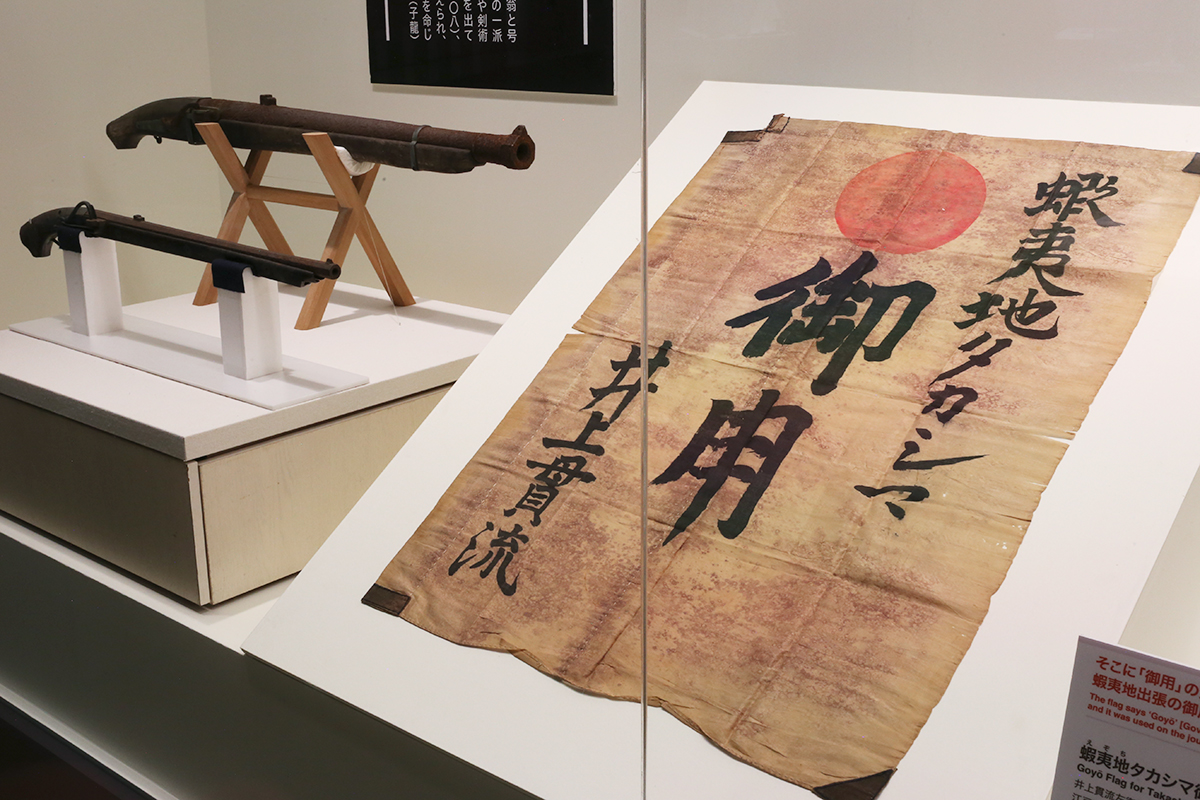 翁と号
の一派
や剣術
を出て
〇八)、
えられ、
を命じ
(子龍)
蝦夷地タカシマ
御用
井上貫流
そこに「御用」の
蝦夷地出張の御
The flag says 'Goyō' [Gov
and it was used on the jou
えぞち
蝦夷地タカシマ
Goyō Flag for Takas
井上貫流左